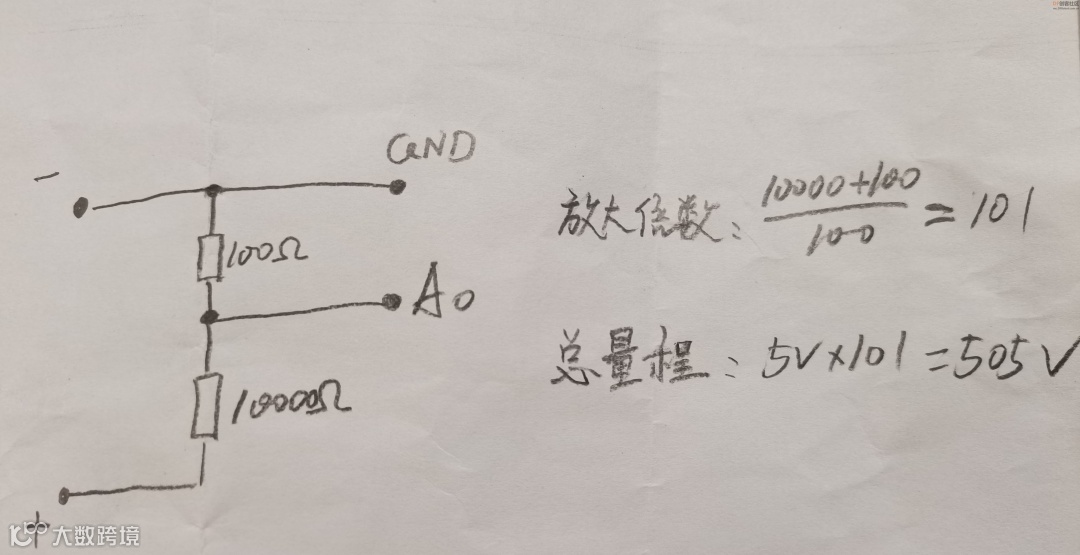 GND
−
100Ω
A0
10000Ω
+
放大倍数: (10000+100)/100 = 101
总量程: 5V×101=505V
大数跨境